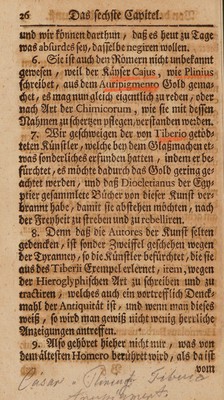 26 Das sechste Capitel.
und wir können darthun, daß es heut zu Tage
was absurdes sey, dasselbe negiren wollen.
6. Sie ist auch den Römern nicht unbekannt
gewesen, weil der Käyser Cajus, wie Plinius
schreibet, aus dem Auripigmento Gold gemac
het, es mag nun gleich eigentlich zu reden, oder
nach Art der Chimicorum, wie sie mit dessen
Nahmen zu schertzen pflegen, verstanden werden.
7. Wir geschweigen der von Tiberio getöd-
teten Künstler, welche bey dem Glaßmachen et-
was sonderliches erfunden hatten, indem er be-
fürchtet, es möchte dadurch das Gold gering ge-
achtet werden, und daß Diocletianus der Egy-
ptier gesammlete Bücher von dieser Kunst ver-
brannt habe, damit sie abstehen möchten, nach
der Freyheit zu streben und zu rebelliren.
8. Denn daß die Autores der Kunst selten
gedencken, ist sonder Zweiffel geschehen wegen
der Tyrannen, so die Künstler befürchtet, die sie
aus des Tiberii Exempel erlernet, item, wegen
der Hieroglyphischen Art zu schreiben und zu
tractiren, welches auch ein vortrefflich Denck-
mahl der Antiquität ist, und wenn man dieses
weiß, so wird man gewiß nicht wenig herrliche
Anzeigungen antreffen.
9. Also gehöret hieher nicht nur, was von
dem ältesten Homero berühret wird, als da ist
vom